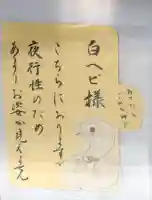 白ヘビ様
こちらにおりますが
夜行性のため
あまりお姿が見えません